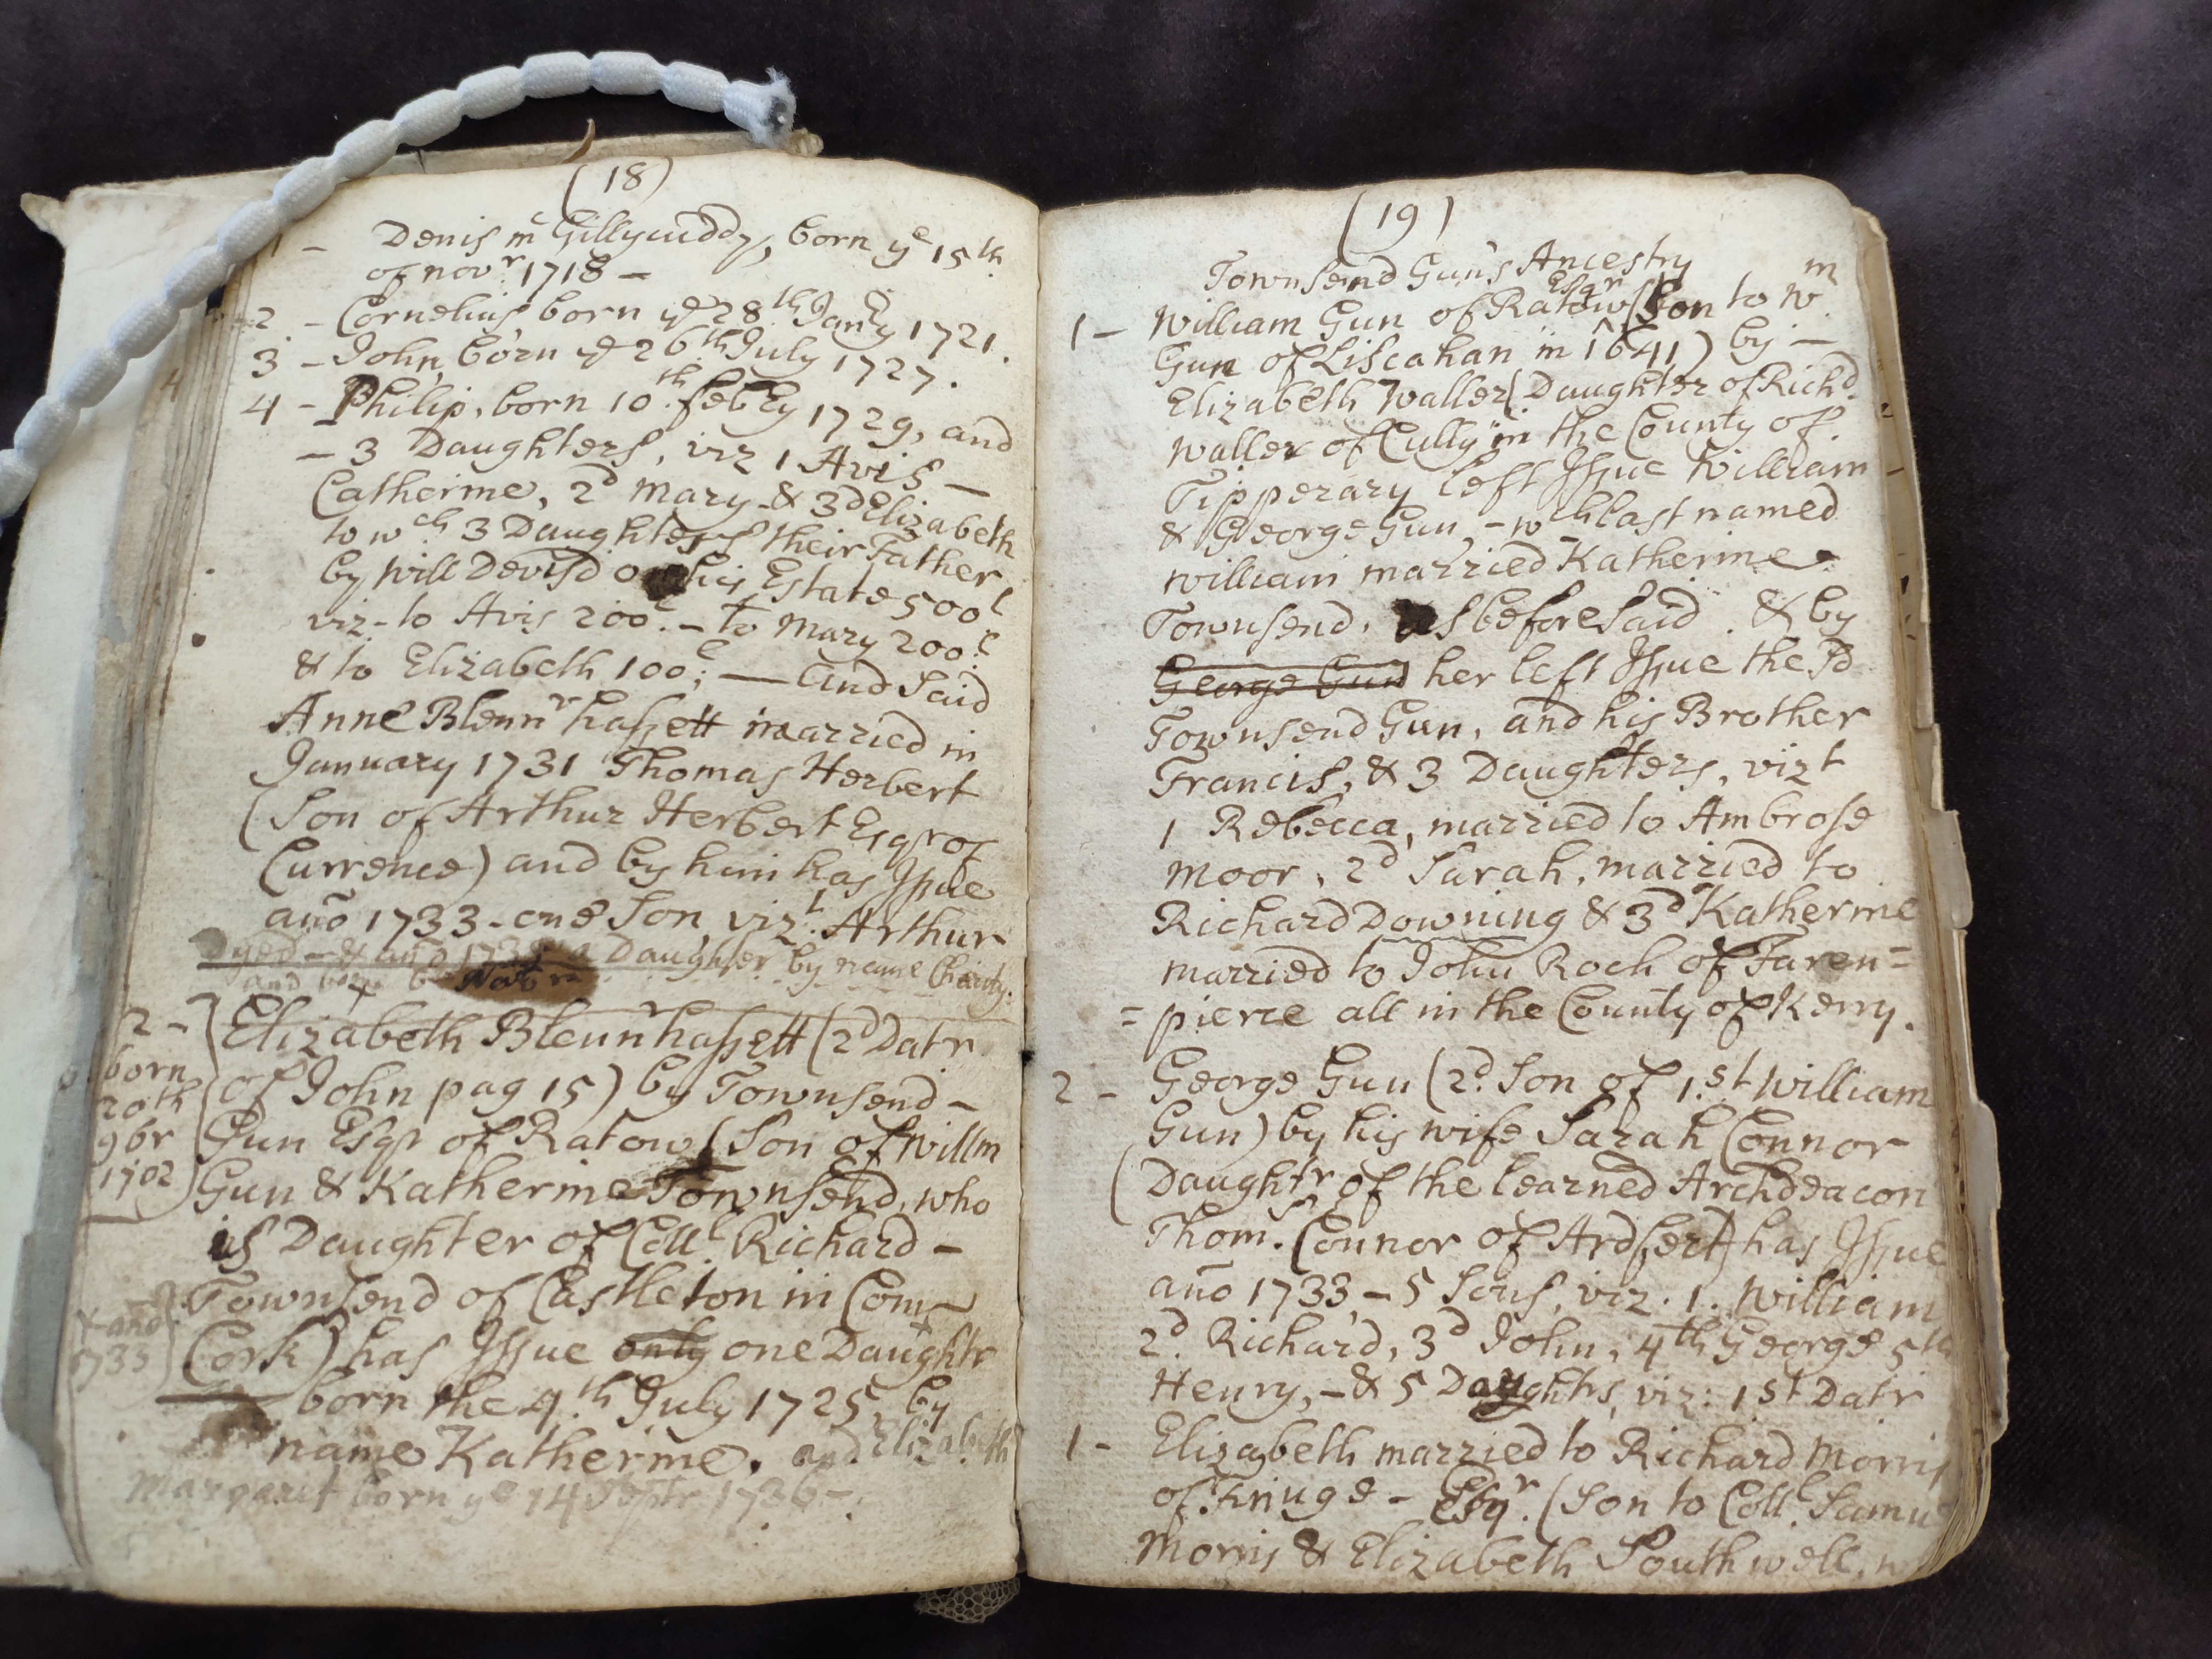 (18)
1 - Denis mc Gillycuddy, born ye 15th
of novr. 1718 -
2 - Cornelius born ye 28th Janry 1721.
3 - John, born ye 26th July 1727.
4 - Philip, born 10th. febry 1729, and
- 3 Daughters, viz 1 Avis -
Catherine, 2d Mary & 3d Elizabeth
to wch 3 Daughters their Father
by will Devis'd on his Estate 500l
viz - to Avis 200l. - to Mary 200l.
& to Elizabeth 100l; - and Said
Anne Blennrhassett married in
January 1731 Thomas Herbert
(Son of Arthur Herbert Esqr of
Currence) and by him has Issue
año 1733 - one Son, vizt. Arthur
dyed - & año a Daughter by name Charity.
and
2 - Elizabeth Blennrhassett (2d Datr
born of John pag 15) by Townsend -
20th
9br Gun Esqr of Ratow (Son of Willm
1702 Gun & Katherine Townsend, who
is Daughter of Coll. Richard -
Townsend of Castleton in Com
x año
1733 Cork) has Issue only one Daughtr
born the 4th July 1725 by
name Katherine. and Elizabeth
Margaret born ye 14 Septr 1736 -
(19)
Townsend Gun's Ancestry
1 - William Gun of Ratow Esqr (Son to Wm
Gun of Liscahan in 1641) by -
Elizabeth Waller (Daughter of Richd.
Waller of Cully in the County of
Tipperary left Issue William
& George Gun, - wch last named
William married Katherine
Townsend, as beforesaid. & by
George Gun her left Issue the Sd
Townsend Gun, and his Brother
Francis, & 3 Daughters, vizt
1 Rebecca, married to Ambrose
Moor, 2d Sarah, married to
Richard Downing & 3d Katherine
married to John Roch of Faren=
=pierce all in the County of Kerry.
2 - George Gun (2d. Son of 1.st William
Gun) by his wife Sarah Connor
(Daughtr of the learned Archdeacon
Thoms. Connor of Ardfert) has Issue
año 1733 - 5 Sons, viz. 1. William
2d. Richard, 3d John, 4th George 5th
Henry, - & 5 Daughtrs, viz: 1st Datr
1 - Elizabeth married to Richard Morris
of Finuge - Esqr. (Son to Coll. Samu
Morris & Elizabeth Southwell,